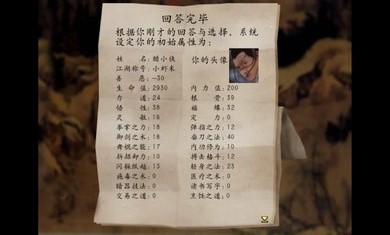 回答完毕
根据你刚才的回答与选择，系统
设定你的初始属性为：
姓 名：醋小侠
你的头像
江湖称号：小虾米
善 恶：-30
生命值：2930 内力值：200
力 道：24 根 骨：39
悟 性：38 福 缘：32
灵 敏：16 定 力：0
拳掌之力：18 弹指之力：12
御剑之术：18 奇刀之法：40
奔镜之能：17 内功修为：10
拆招卸力：10 搏击格斗：12
闪躲纵跃：13 轻身之法：23
施毒之术：0 医疗之术：0
暗器技法：0 读书写字：0
交易之道：0 烹饪之道：0